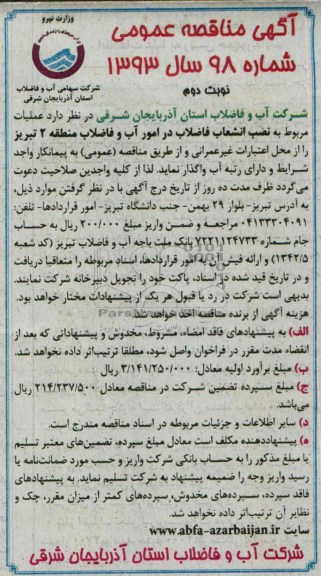 وزارت نیرو
شرکت سهامی آب و فاضلاب
استان آذربایجان شرقی
آگهی مناقصه عمومی
شماره ۹۸ سال ۱۳۹۳
نوبت دوم
شرکت آب و فاضلاب استان آذربایجان شرقی در نظر دارد عملیات
مربوط به نصب انشعاب فاضلاب در امور آب و فاضلاب منطقه ۲ تبریز
را از محل اعتبارات غیرعمرانی و از طریق مناقصه (عمومی) به پیمانکار واجد
شرایط و دارای رتبه آب واگذار نماید. لذا از کلیه واجدین صلاحیت دعوت
می‌گردد ظرف مدت ده روز از تاریخ درج آگهی با در نظر گرفتن موارد ذیل،
به آدرس تبریز- بلوار ۲۹ بهمن- جنب دانشگاه تبریز- امور قراردادها- تلفن:
۰۴۱۳۳۳۰۴۰۹۱ مراجعه و ضمن واریز مبلغ ۲۰۰/۰۰۰ ریال به حساب
جام شماره بانک ملت باجه آب و فاضلاب تبریز (کد شعبه
۱۳۴۲/۵) و ارائه فیش آن به امور قراردادها، اسناد مربوطه را متعاقبا دریافت
و در تاریخ قید شده در اسناد، پاکت خود را تحویل دبیرخانه شرکت نمایند.
بدیهی است شرکت در رد یا قبول هر یک از پیشنهادات مختار خواهد بود.
هزینه آگهی از برنده مناقصه اخذ خواهد شد.
الف) به پیشنهادهای فاقد امضاء، مشروط، مخدوش و پیشنهاداتی که بعد از
انقضاء مدت مقرر در فراخوان واصل شود، مطلقا ترتیب‌اثر داده نخواهد شد.
ب) مبلغ برآورد اولیه معادل: ۳/۱۴۱/۲۵۰/۰۰۰ ریال
ج) مبلغ سپرده تضمین شرکت در مناقصه معادل ۲۱۴/۲۳۷/۵۰۰ ریال
می‌باشد.
د) سایر اطلاعات و جزئیات مربوطه در اسناد مناقصه مندرج است.
ه) پیشنهاددهنده مکلف است معادل مبلغ سپرده، تضمین‌های معتبر تسلیم
یا مبلغ مذکور را به حساب بانکی شرکت واریز و حسب مورد ضمانت‌نامه یا
رسید واریز وجه را ضمیمه پیشنهاد به شرکت تسلیم نماید. به پیشنهادهای
فاقد سپرده، سپرده‌های مخدوش، سپرده‌های کمتر از میزان مقرر، چک و
نظایر آن ترتیب‌اثر داده نخواهد شد.
سایت www.abfa-azarbaijan.ir
شرکت آب و فاضلاب استان آذربایجان شرقی